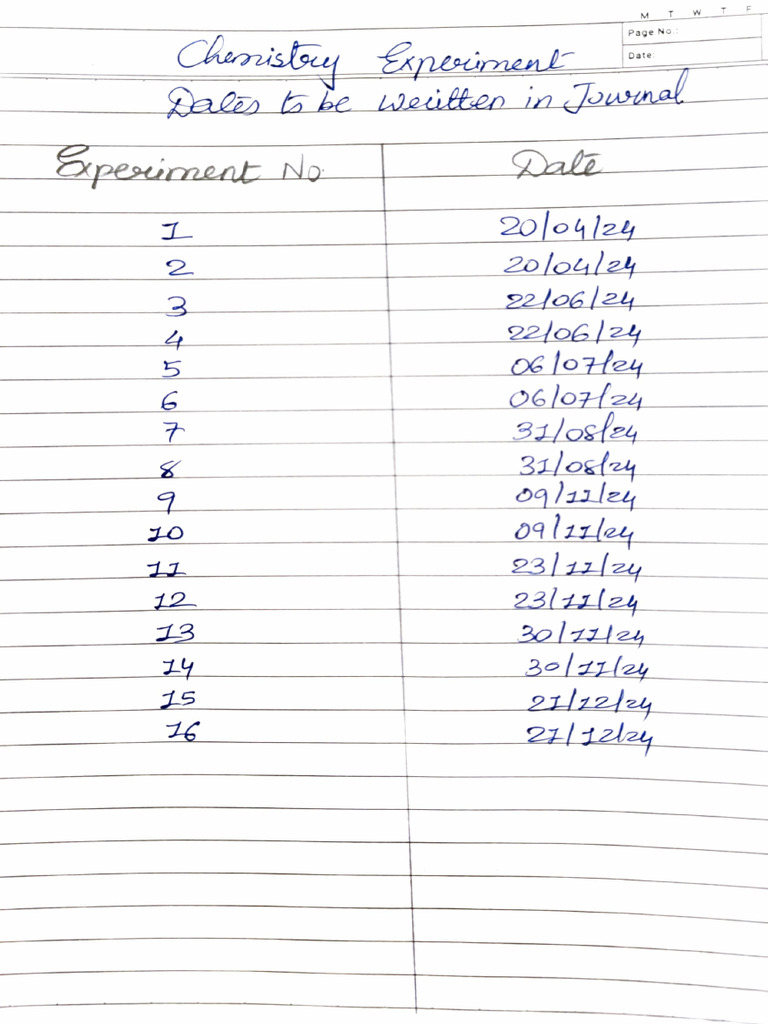 M T W T F
Page No.:
Date:
Chemistry Experiment
Dates to be written in Journal
Experiment No. Date
1 20/04/24
2 20/04/24
3 22/06/24
4 22/06/24
5 06/07/24
6 06/07/24
7 31/08/24
8 31/08/24
9 09/11/24
10 09/11/24
11 23/11/24
12 23/11/24
13 30/11/24
14 30/11/24
15 21/12/24
16 21/12/24